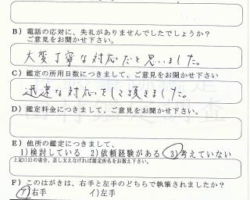 B)電話の応対に、失礼がありませんでしたでしょうか?
ご意見をお聞かせ下さい。
大変丁寧な対応だと思いました。
C)鑑定の所用日数につきまして、ご意見をお聞かせ下さい。
迅速な対応をして頂きました。
D)鑑定料金につきまして、ご意見をお聞かせ下さい。
E)他所の鑑定につきまして、
1)検討している 2)依頼経験がある 3)考えていない
F)このはがきは、右手と左手のどちらで執筆されましたか?
ア)右手 イ)左手